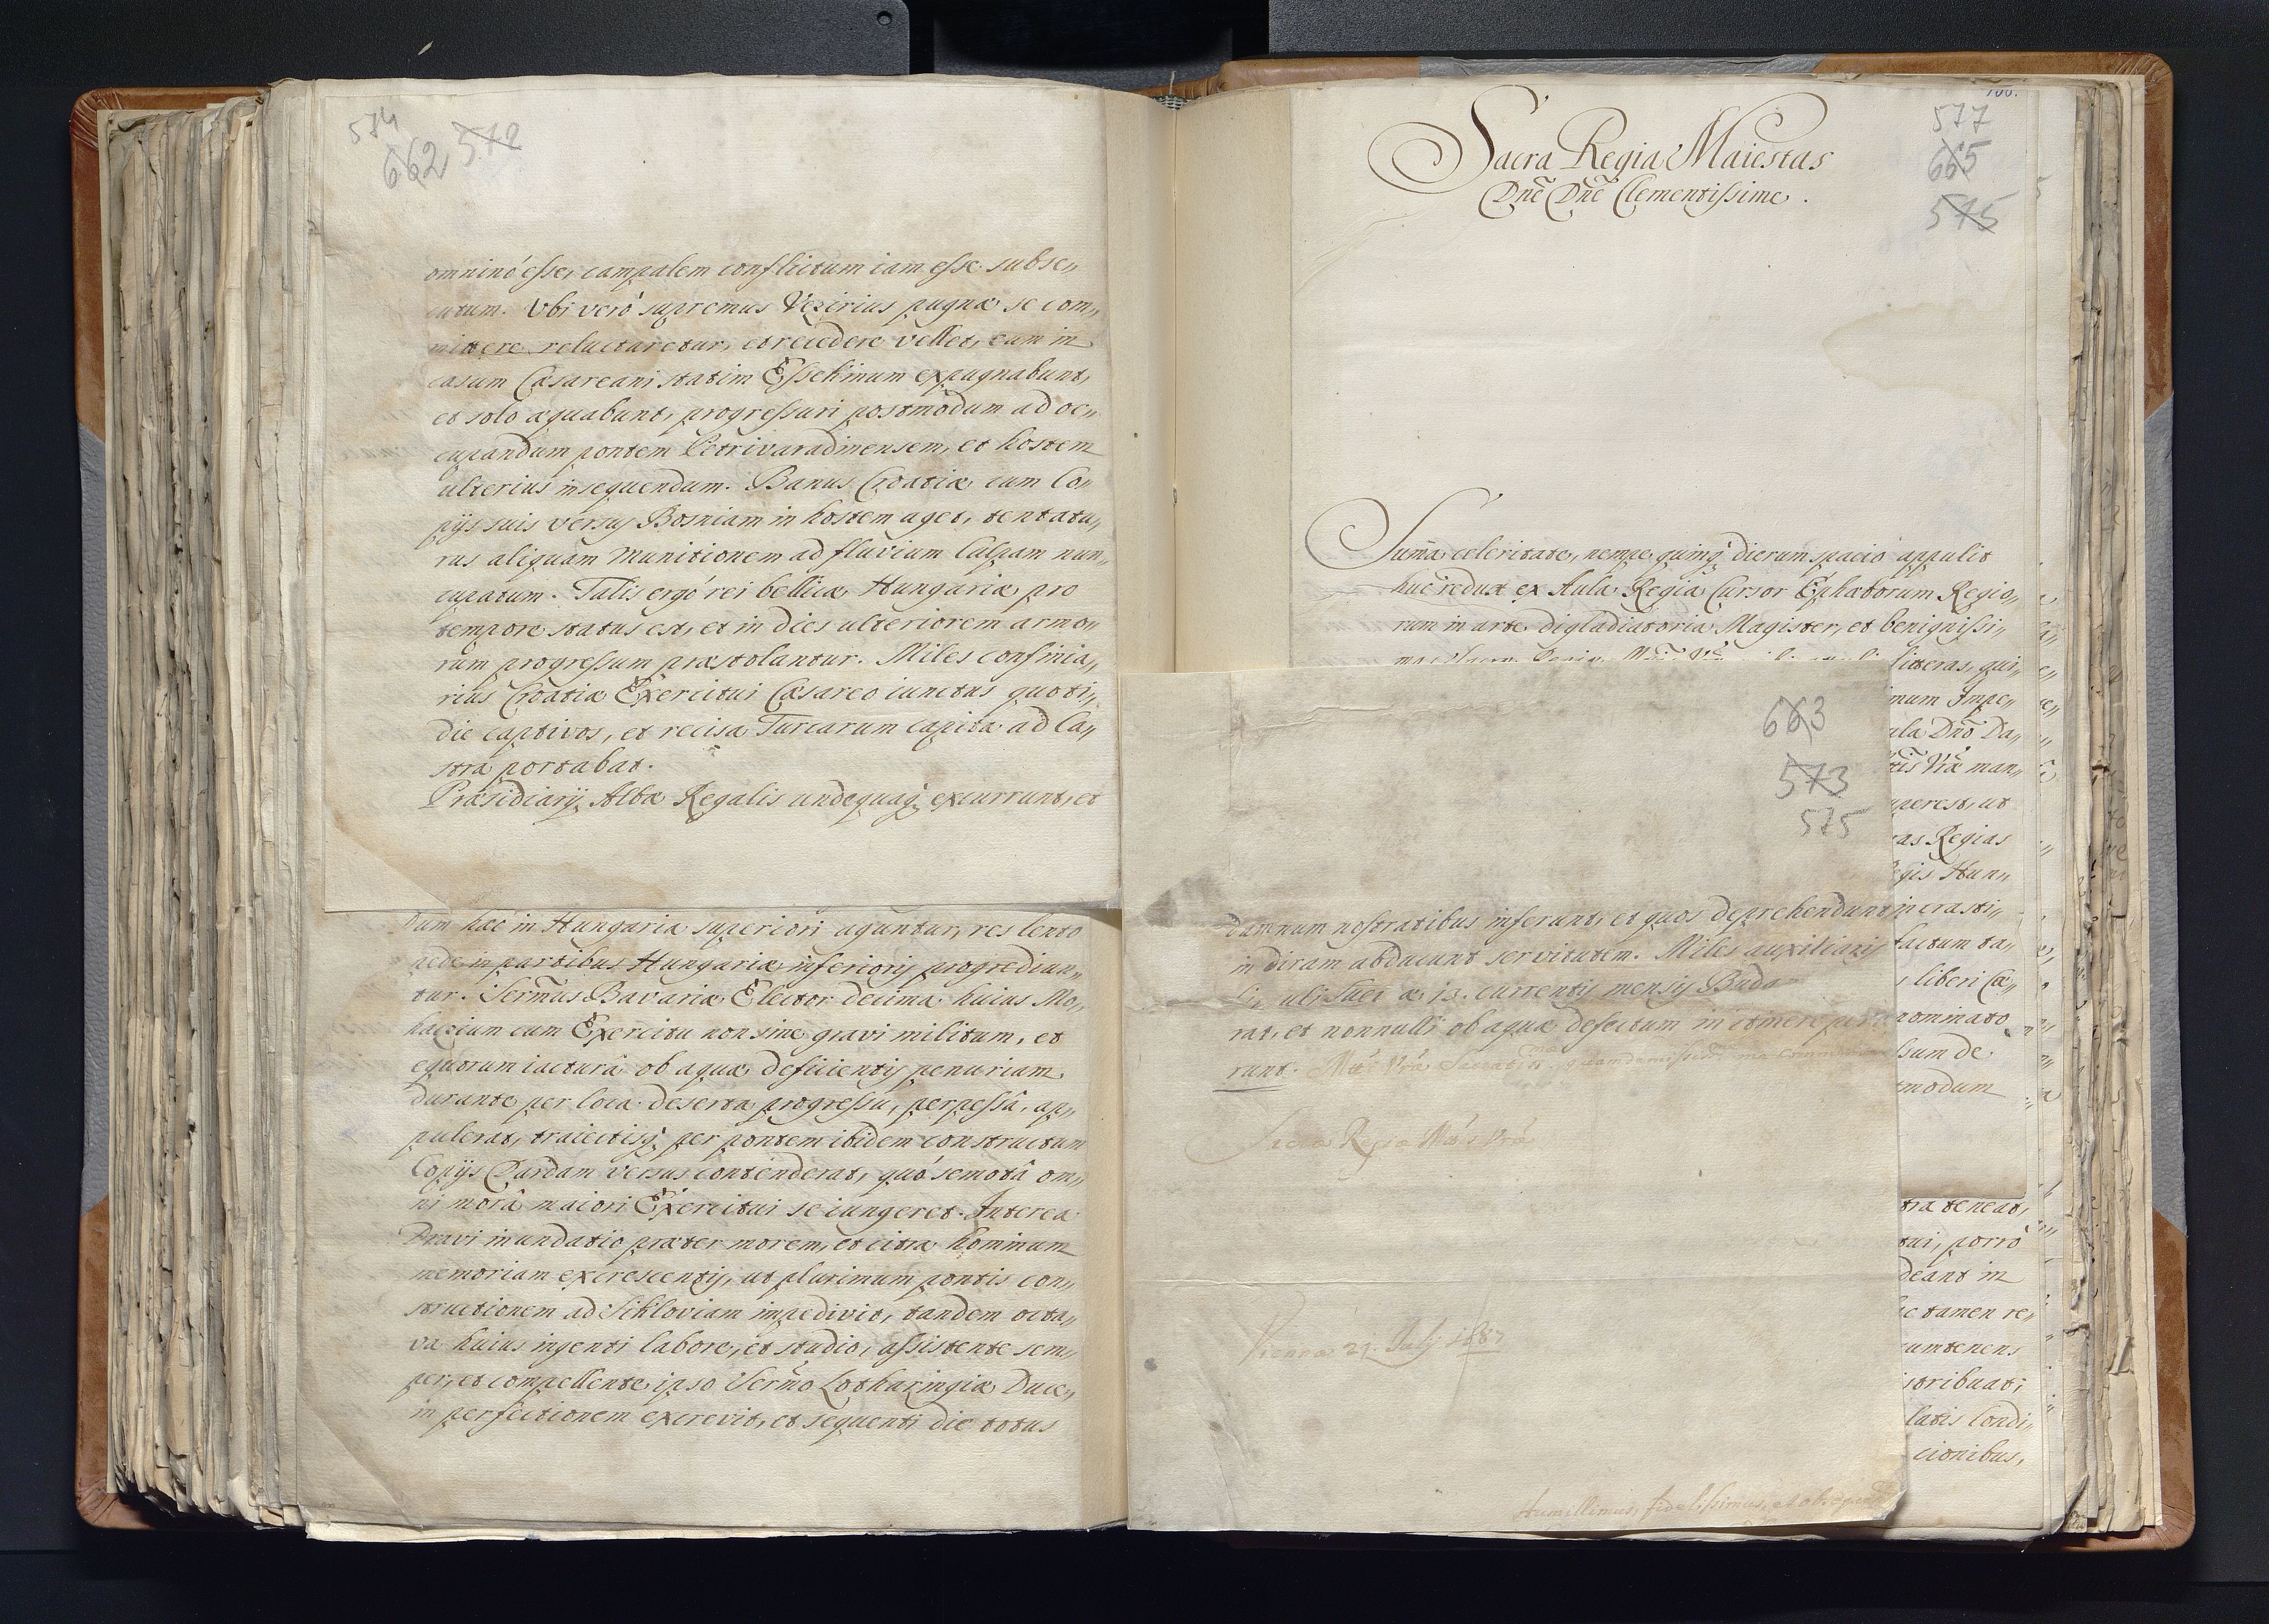 574
662 572
omninò esse, campalem conflictum iam esse subse„
cutum. Ubi verò supremus Vezirius pugnæ se com„
mittere reluctaretur, et recedere vellet, eum in
casum Cæsareani statim Essekinum expugnabunt,
et solo æquabunt, progressuri postmodum ad oc„
cupandum pontem Petrivaradinensem, et hostem
ulterius insequendum. Banus Croatiæ cum Co„
pijs suis versus Bosniam in hostem aget, tentatu„
rus aliquam munitionem ad fluvium Culpam nun„
cupatum. Talis ergò rei bellicæ Hungariæ pro
tempore status est, et in dies ulteriorem armo„
rum progressum præstolantur. Miles confinia„
rius Croatiæ Exercitui Cæsareo iunctus quoti„
die captivos, et recisa Turcarum capita ad Ca„
stra portabat.
Præsidiarij Albæ Regalis undequaq; excurrunt, et
Dum hæc in Hungaria superiori aguntur, res lento
pede in partibus Hungariæ inferioris progrediun„
tur. Sermus Bavariæ Elector decima huius Mo„
haczium cum Exercitu non sine gravi militum, et
equorum iacturâ ob aquæ deficientis penuriam
durante per loca deserta progressu, perpessâ, ap„
pulerat, traiectisq; per pontem ibidem constructum
Copijs Dardam versus contenderat, quò semotâ om„
ni morâ maiori Exercitui se iungeret. Interea
Dravi inundatio præter morem, et citra hominum
memoriam excrescentis, ut plurimum pontis con„
structionem ad Sikloviam impedivit, tandem octa„
va huius ingenti labore, et studio, assistente sem„
per, et compellente ipso Sermo Lotharingiæ Duce„
in perfectionem excrevit, et sequenti die totus
577
665
575
Sacra Regia Maiestas
Dne Dne Clementissime.
Suma celeritate, nempe quinq; dierum spacio appulit
huc redux ex Aula Regia Cursor Ephæborum Regio„
rum in arte digladiatoria Magister, et benignissi„
litteras, qui„
mum Impe„
ula Dno Da„
Vræ man„
uperest, ut
as Regias
egis Hun„
in crasti„
factum ta„
liberi Cæ„
nominato
sum de
modum
tra teneat,
tui, porrò
deant in
c tamen re„
cumtenens
stribuat;
latis Condi„
cionibus,
663
573
575
damnum nostratibus inferunt, et quos deprehendunt
in diram abducunt servitutem. Miles auxiliaris
13. currentis mensis Buda
rat, et nonnulli ob aquæ defectum in itinere
runt.
Sacræ Regiæ Mtis Vræ
Vienna 21. July 1687
Humillimus, fidelissimus, et